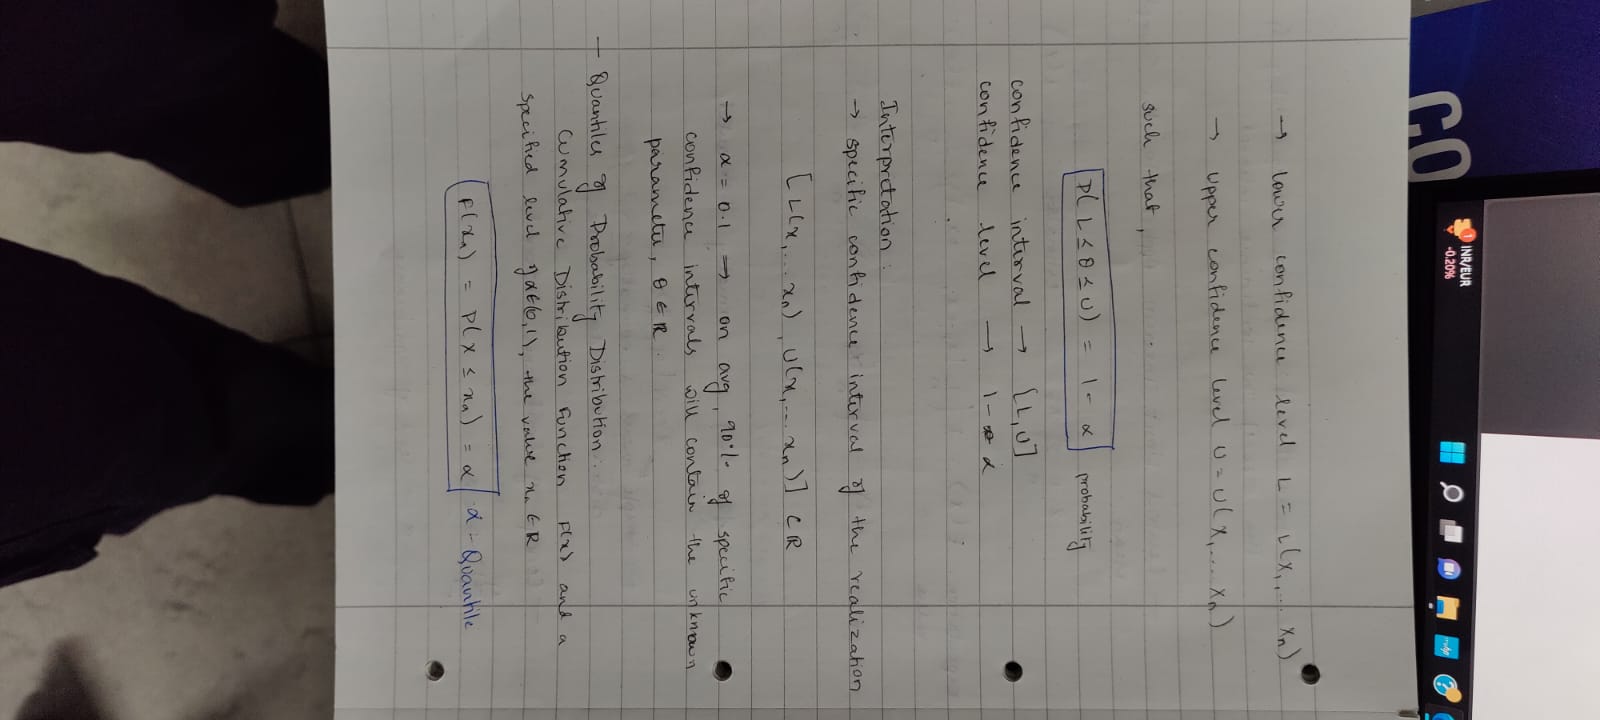 INR/EUR
-0.20%
CO
→ lower confidence level L = L(X₁,... Xₙ)
→ upper confidence level U = U(X,... Xₙ)
such that,
P(L ≤ θ ≤ U) = 1 - α probability
confidence interval → [L,U]
confidence level → 1 - α
Interpretation :
→ specific confidence interval of the realization
[L(x,... xₙ), U(x,... xₙ)] ⊂ ℝ
→ α = 0.1 ⇒ on avg, 90% of specific
confidence intervals will contain the unknown
parameter, θ ∈ ℝ.
- Quantiles of Probability Distribution.
Cumulative Distribution Function F(x) and a
specified level of α∈(0,1), the value xₐ ∈ ℝ
F(xₐ) = P(X ≤ xₐ) = α α - Quantile